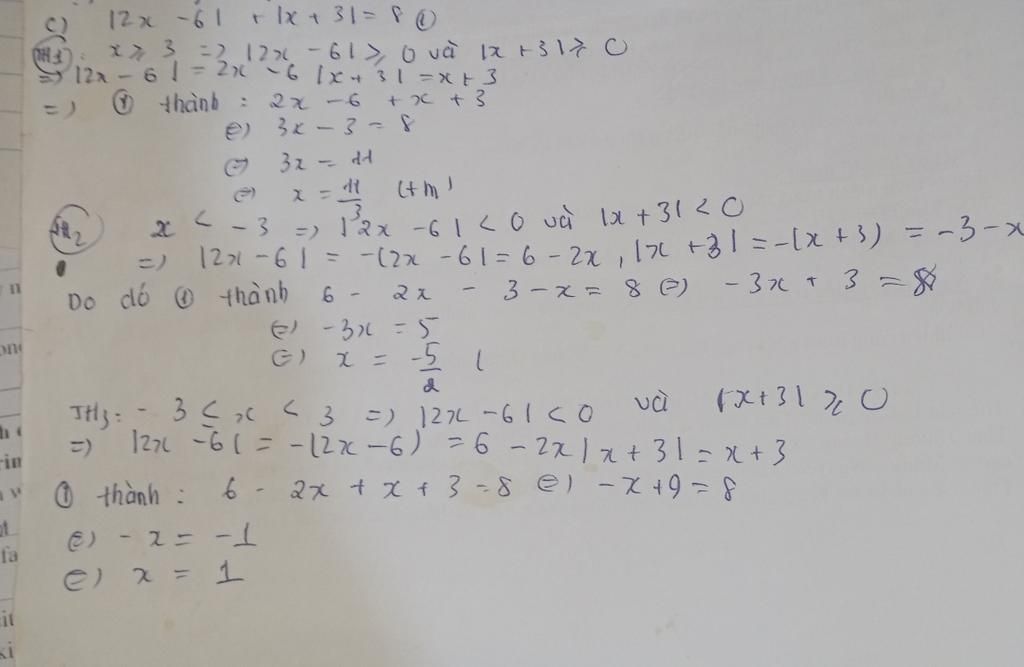 c) |2x - 6| + |x + 3| = 8 ①
TH1: x ⩾ 3 => |2x - 6| ⩾ 0 và |x + 3| ⩾ 0
=> |2x - 6| = 2x - 6 |x + 3| = x + 3
=> ① thành : 2x - 6 + x + 3
⇔ 3x - 3 = 8
⇔ 3x = 11
⇔ x = 11/3 (tm)
TH2 x < -3 => |2x - 6| < 0 và |x + 3| < 0
=> |2x - 6| = -(2x - 6| = 6 - 2x , |x + 3| = -(x + 3) = -3 - x
Do đó ① thành 6 - 2x - 3 - x = 8 ⇔ -3x + 3 = 8
⇔ -3x = 5
⇔ x = -5/2 l
TH3: - 3 ≤ x < 3 => |2x - 6| < 0 và |x + 3| ⩾ 0
=> |2x - 6| = -(2x - 6) = 6 - 2x |x + 3| = x + 3
① thành : 6 - 2x + x + 3 = 8 ⇔ -x + 9 = 8
⇔ - x = -1
⇔ x = 1